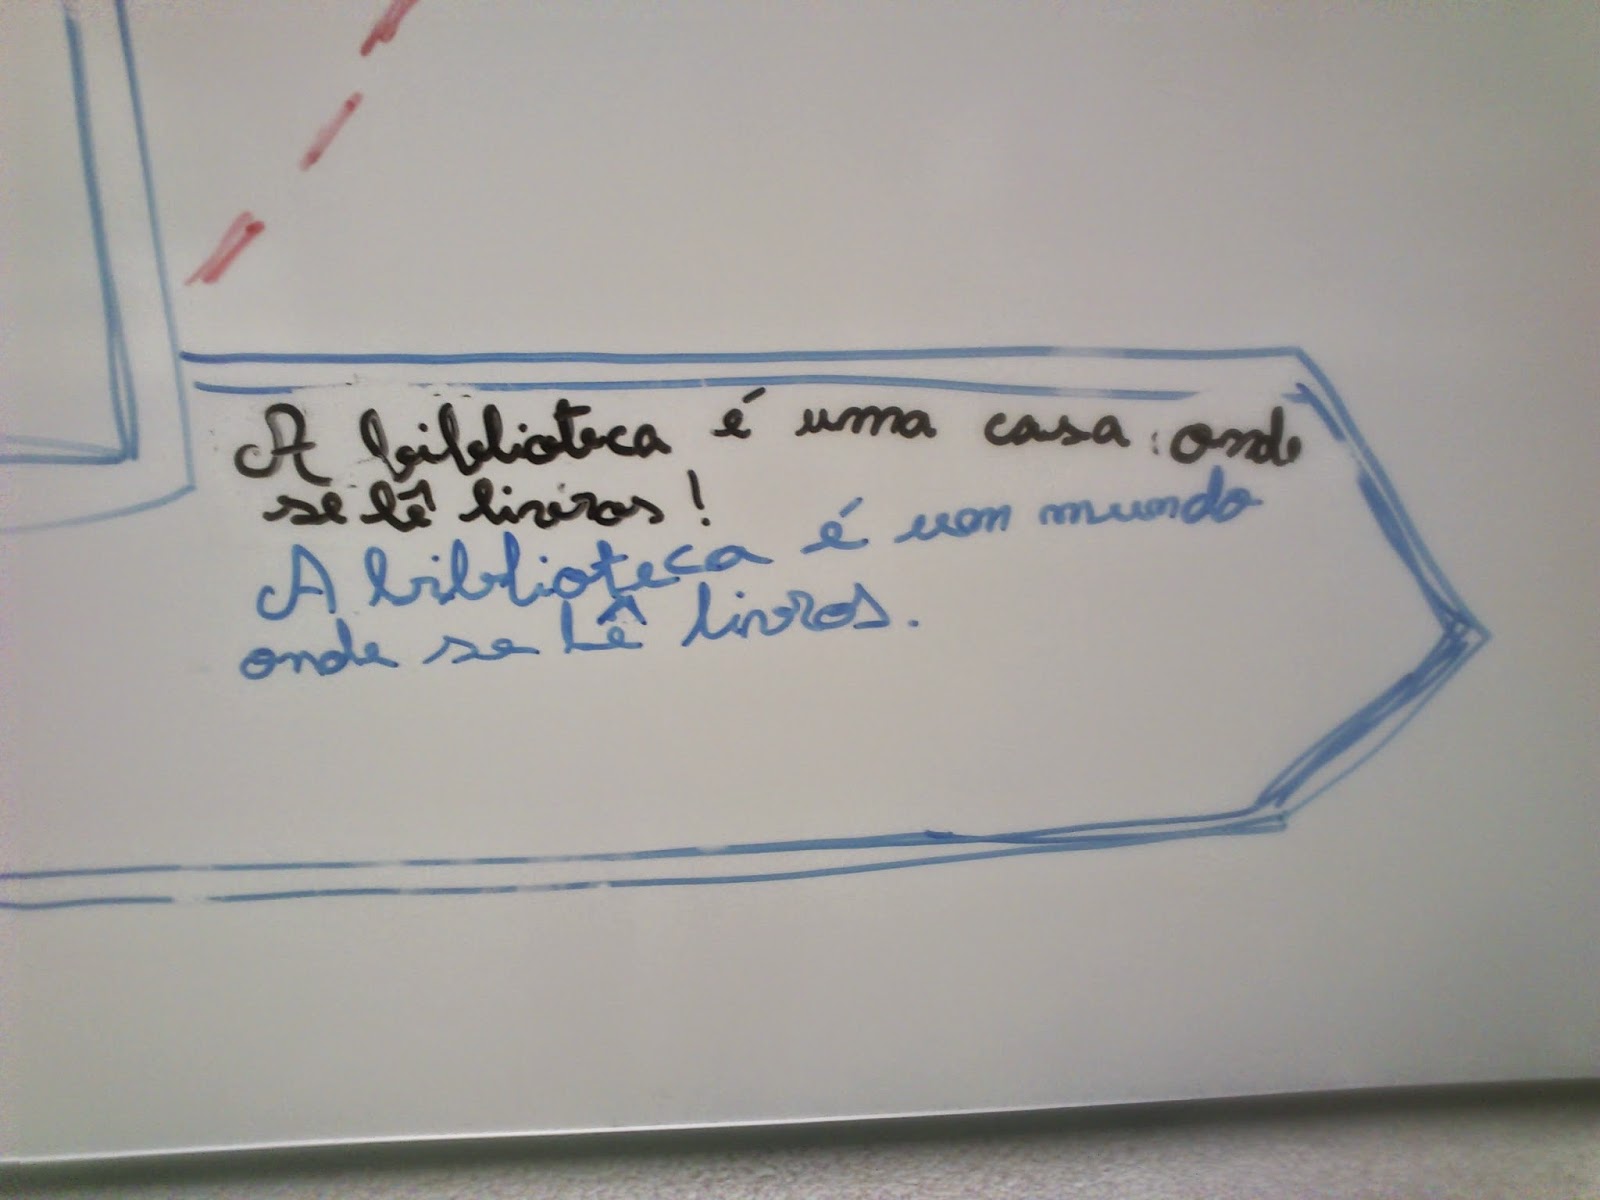 A biblioteca é uma casa onde
se lê livros!
A biblioteca é um mundo
onde se lê livros.